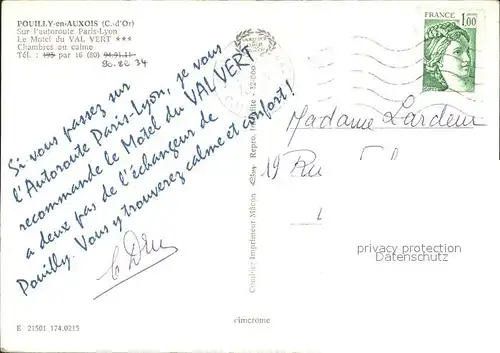 POUILLY-en-AUXOIS (C.-d'Or)
Sur l'autoroute Paris-Lyon
Le Motel du VAL VERT ***
Chambres au calme
Tél. : 195 par 16 (80) 94.91.11
90.82.34
Si vous passez sur
l'Autoroute Paris-Lyon, je vous
recommande le Motel du VAL VERT
a deux pas de l'échangeur de
Pouilly. Vous y trouverez calme et confort!
Combier Imprimeur Mâcon
Repro. Interdite
FRANCE
1,00
Madame Lardeur
19 Ru
privacy protection
Datenschutz
cimcrome
E 21501 174.0215